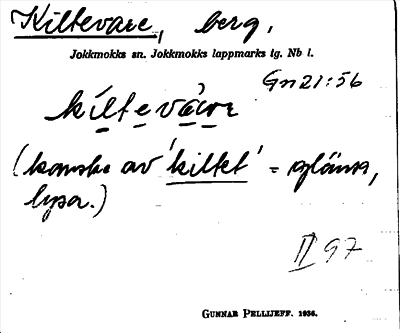 Kiltevare, berg.
Jokkmokks sn. Jokkmokks lappmarks tg. Nb l.
Gn 21:56
kíltevárre
(kanske av 'kiltet' = glänsa,
lysa.)
II 97
GUNNAR PELLIJEFF. 1936.